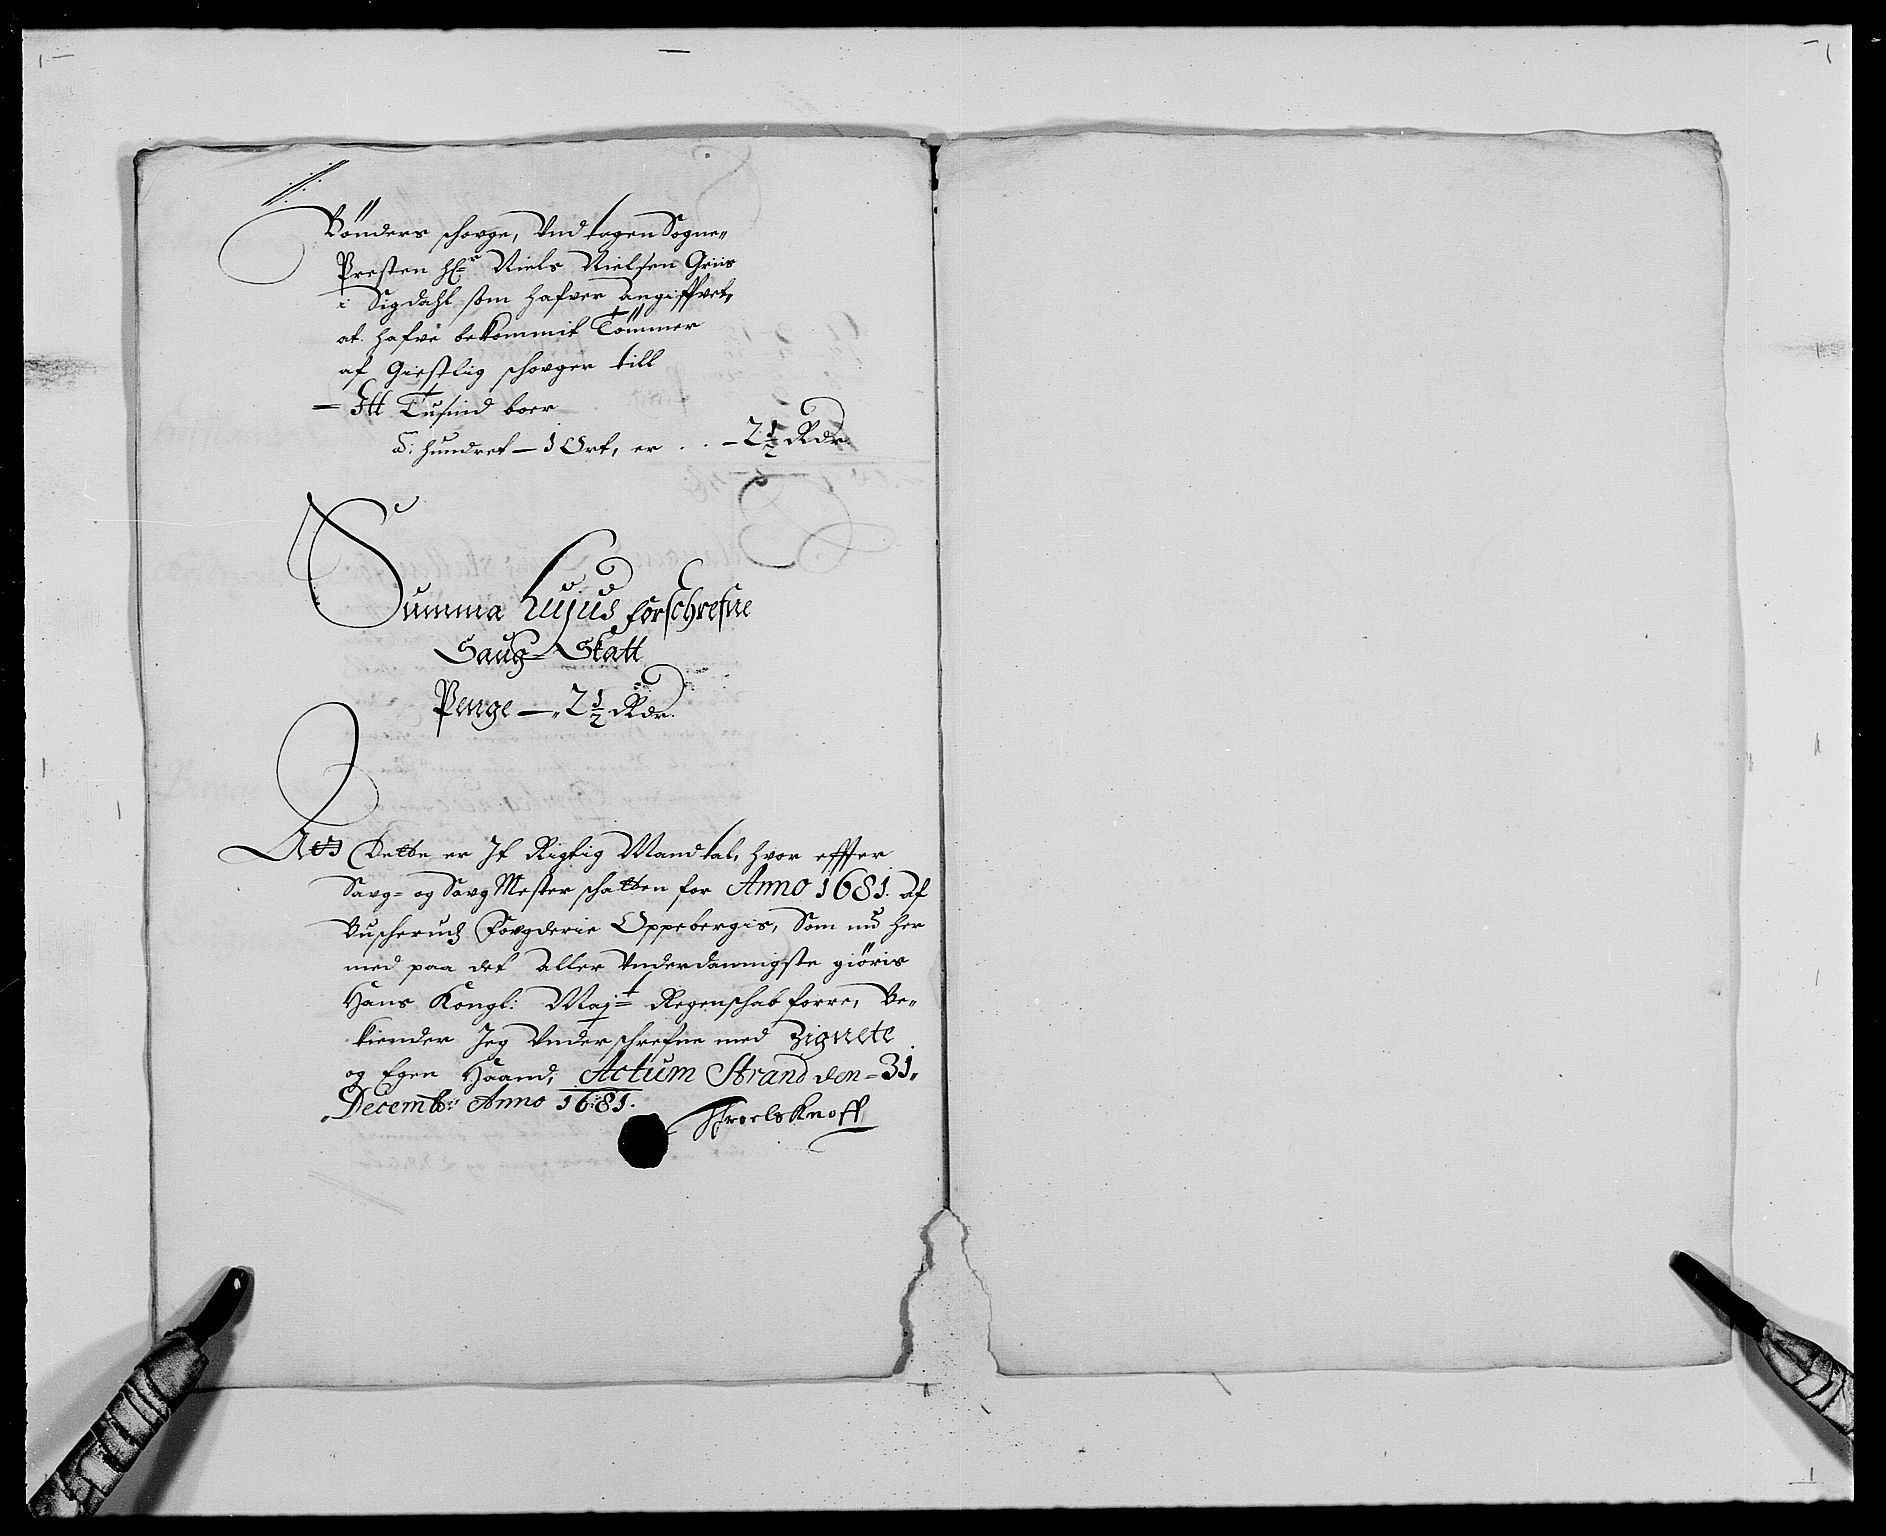 Bönders schovge, Vndtagen Sogne-
Presten Hr: Niels Nielsen Griis
i Sigdahl som hafver angiffvet,
at hafve bekommit Tömmer
af Giestlig schovger till
— Itt Tusind boer
d: hundret — 1 Ort, er . . — 2 1/2 Rdr.
Summa Hujus forschrefne
Saug-Skatt
Penge — 2 1/2 Rdr.
At Dette er It Rigtig Mandtal, hvor effter
Savg- og Savg Mester schatten for Anno 1681. af
Buscheruds Fovgderie Oppebergis, Som nu her
med paa det aller Vnderdannigste giöris
Hans Kongl: Maj:t Regenschab forre, Be-
kiender Jeg Vnderschrefne med Zignete
og Egen Haand, Actum Strand den 31.
Decemb: Anno 1681.
Troels Knoff